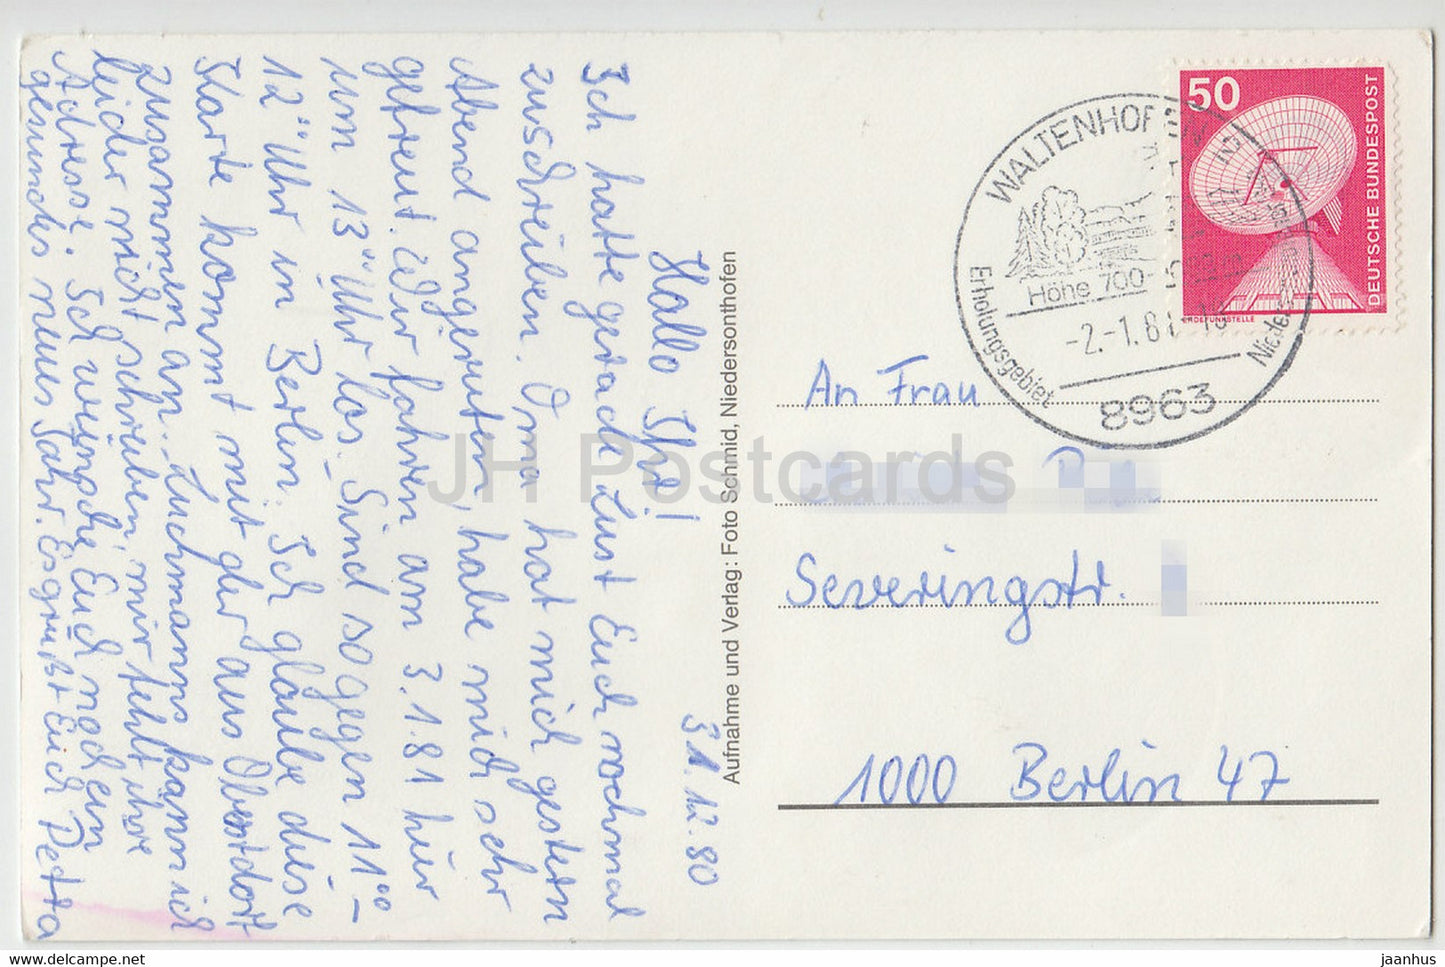 31.12.80
Hallo Ihr!
Ich hatte gerade Lust Euch nochmal
zuschreiben. Oma hat mich gestern
Abend angerufen, habe mich sehr
gefreut. Wir fahren am 3.1.81 hier
um 13°° Uhr los. Sind so gegen 11°°-
12°° Uhr in Berlin. Ich glaube diese
Karte kommt mit der aus Obstdorf
zusammen an. Zuchmanns kann ich
leider nicht schreiben, mir fehlt ihre
Adresse. Ich wünsche Euch noch ein
gesundes neues Jahr. Es grüßt Euch Petra
Aufnahme und Verlag: Foto Schmid, Niedersonthofen
50
DEUTSCHE BUNDESPOST
ERDEFUNKSTELLE
WALTENHOFEN
Höhe 700-
-2.-1.81-
Erholungsgebiet
8963
An Frau
Severingstr.
1000 Berlin 47
JH Postcards
www.hippostcard.com
jaanhus